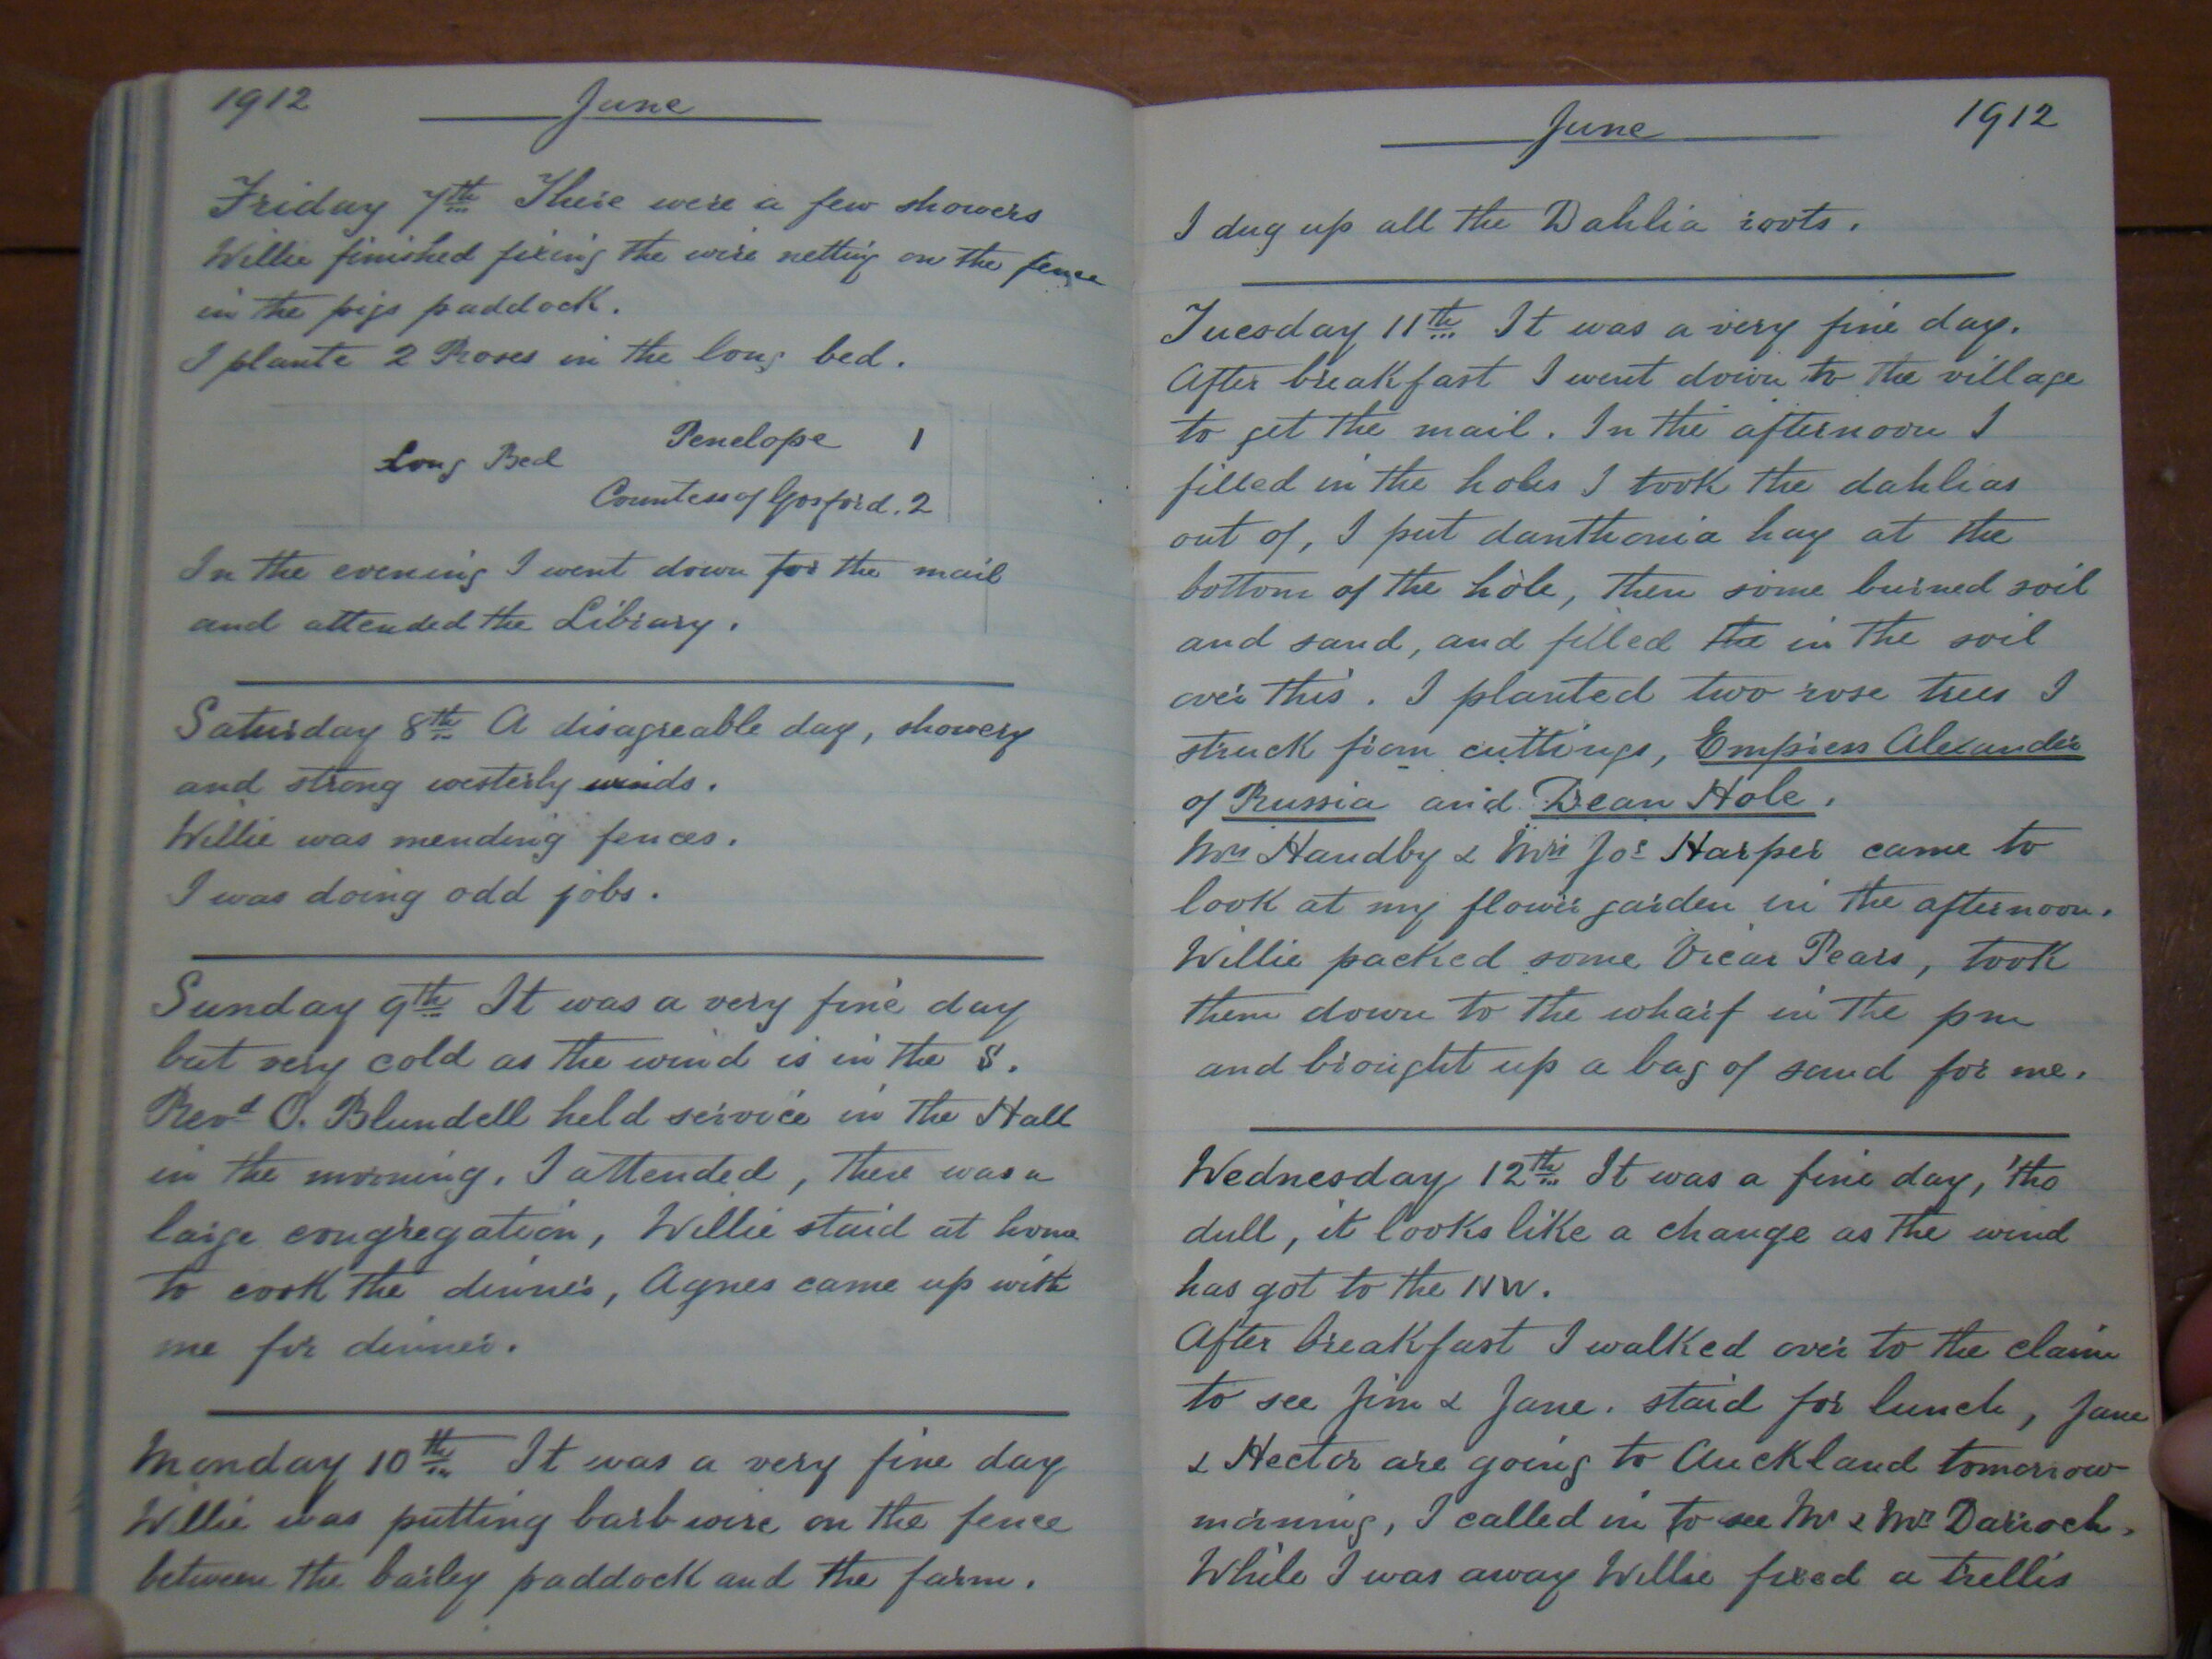 1912 June
Friday 7th There were a few showers
Willie finished fixing the wire netting on the fence
in the pigs paddock.
I plante 2 Roses in the long bed.
Long Bed Penelope 1
Countess of Gosford. 2
In the evening I went down for the mail
and attended the Library.
Saturday 8th A disagreable day, showery
and strong westerly winds.
Willie was mending fences.
I was doing odd jobs.
Sunday 9th It was a very fine day
but very cold as the wind is in the S.
Revd O. Blundell held service in the Hall
in the morning. I attended, there was a
large congregation, Willie staid at home
to cook the dinner, Agnes came up with
me for dinner.
Monday 10th It was a very fine day
Willie was putting barb wire on the fence
between the barley paddock and the farm.
June 1912
I dug up all the Dahlia roots.
Tuesday 11th It was a very fine day.
After breakfast I went down to the village
to get the mail. In the afternoon I
filled in the holes I took the dahlias
out of, I put danthonia hay at the
bottom of the hole, then some burned soil
and sand, and filled the in the soil
over this. I planted two rose trees I
struck from cuttings, Empress Alexander
of Russia and Dean Hole.
Mrs Handby & Mrs Jos Harper came to
look at my flower garden in the afternoon.
Willie packed some Vicar Pears, took
them down to the wharf in the pm
and brought up a bag of sand for me.
Wednesday 12th It was a fine day, 'tho
dull, it looks like a change as the wind
has got to the NW.
After breakfast I walked over to the claim
to see Jim & Jane. staid for lunch, Jane
& Hector are going to Auckland tomorrow
morning, I called in to see Mr & Mrs Darroch.
While I was away Willie fixed a trellis